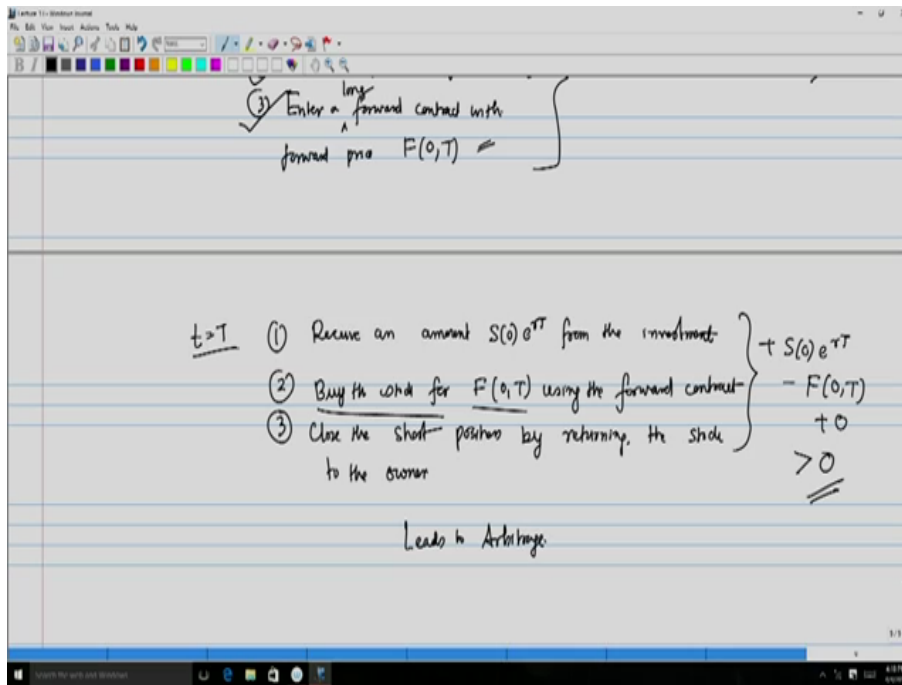 Lecture 13 - Windows Journal
File Edit View Insert Actions Tools Help
B I
long
③ Enter a ^ forward contract with
forward price F(0,T)
t=T ① Receive an amount S(0)e^{rT} from the investment
+ S(0)e^{rT}
② Buy the stock for F(0,T) using the forward contract
- F(0,T)
③ Close the short position by returning, the stock
+0
to the owner
>0
Leads to Arbitrage.